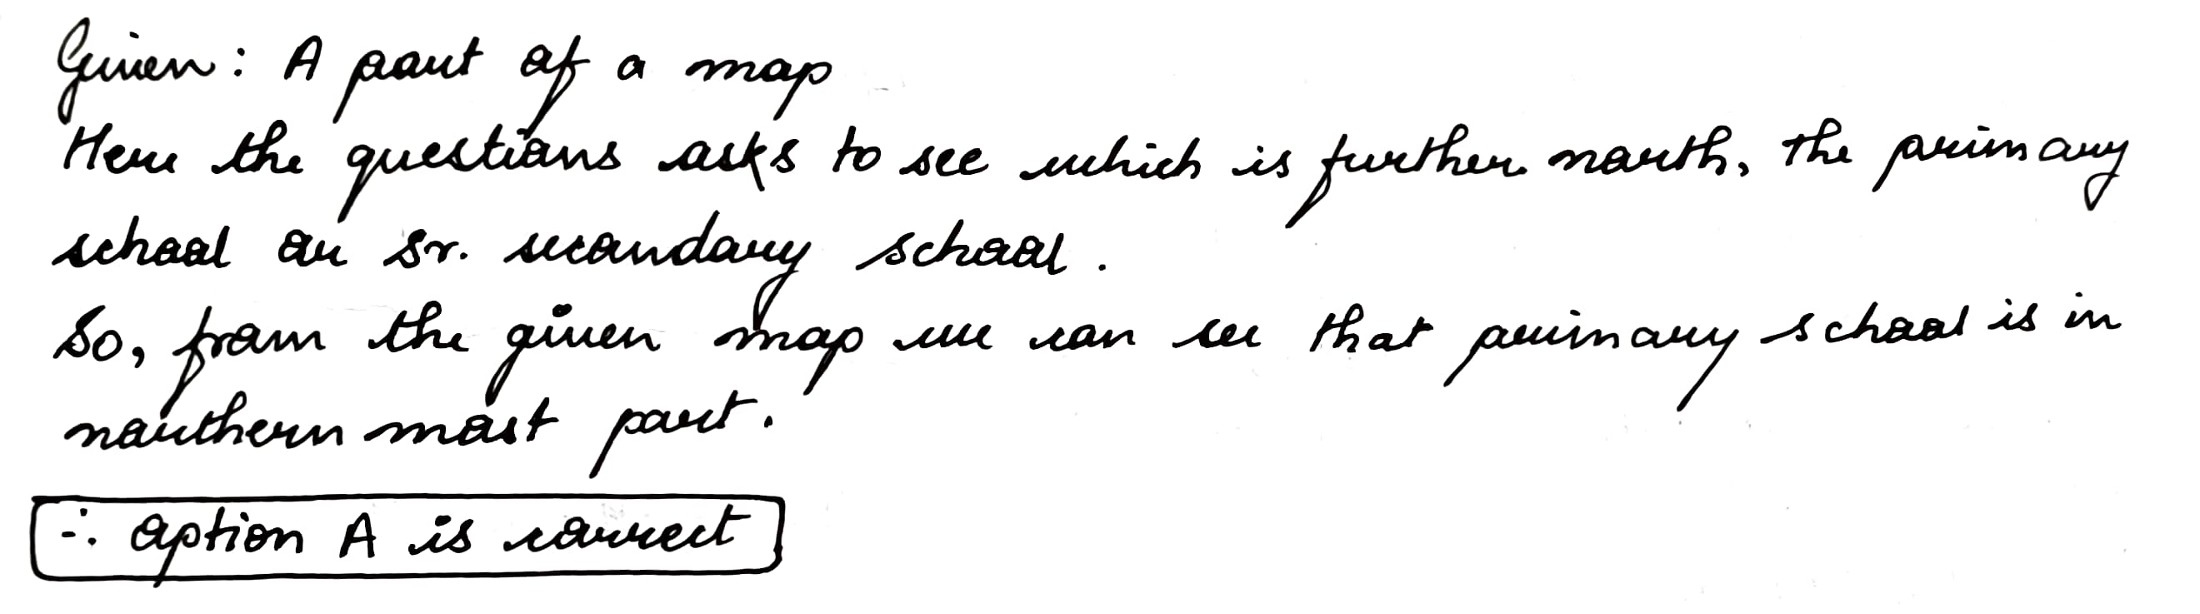 Given: A part of a map
Here the questions asks to see which is further north, the primary
school or sr. secondary school.
So, from the given map we can see that primary school is in
northern most part.
∴ option A is correct